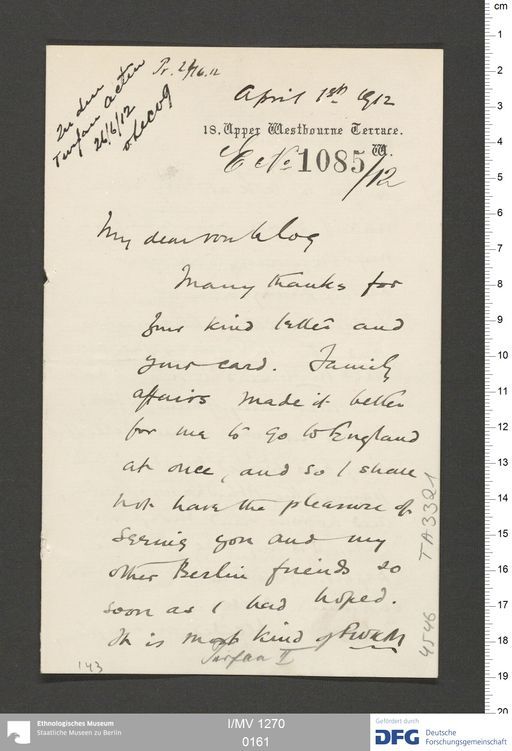 Zu den
Turfan acten
26/6/12
v Lecoq
Pr. 26/6.12
April 1st 1912
18, Upper Westbourne Terrace.
W.
E No 1085/12
My dear von Lecoq
Many thanks for
your kind letter and
your card. Family
affairs made it better
for me to go to England
at once, and so I shall
not have the pleasure of
seeing you and my
other Berlin friends so
soon as I had hoped.
It is most kind of
Turfan II
143
4546 TA 3321
cm
1
2
3
4
5
6
7
8
9
10
11
12
13
14
15
16
17
18
19
20
Ethnologisches Museum
Staatliche Museen zu Berlin
I/MV 1270
0161
Gefördert durch
DFG
Deutsche
Forschungsgemeinschaft